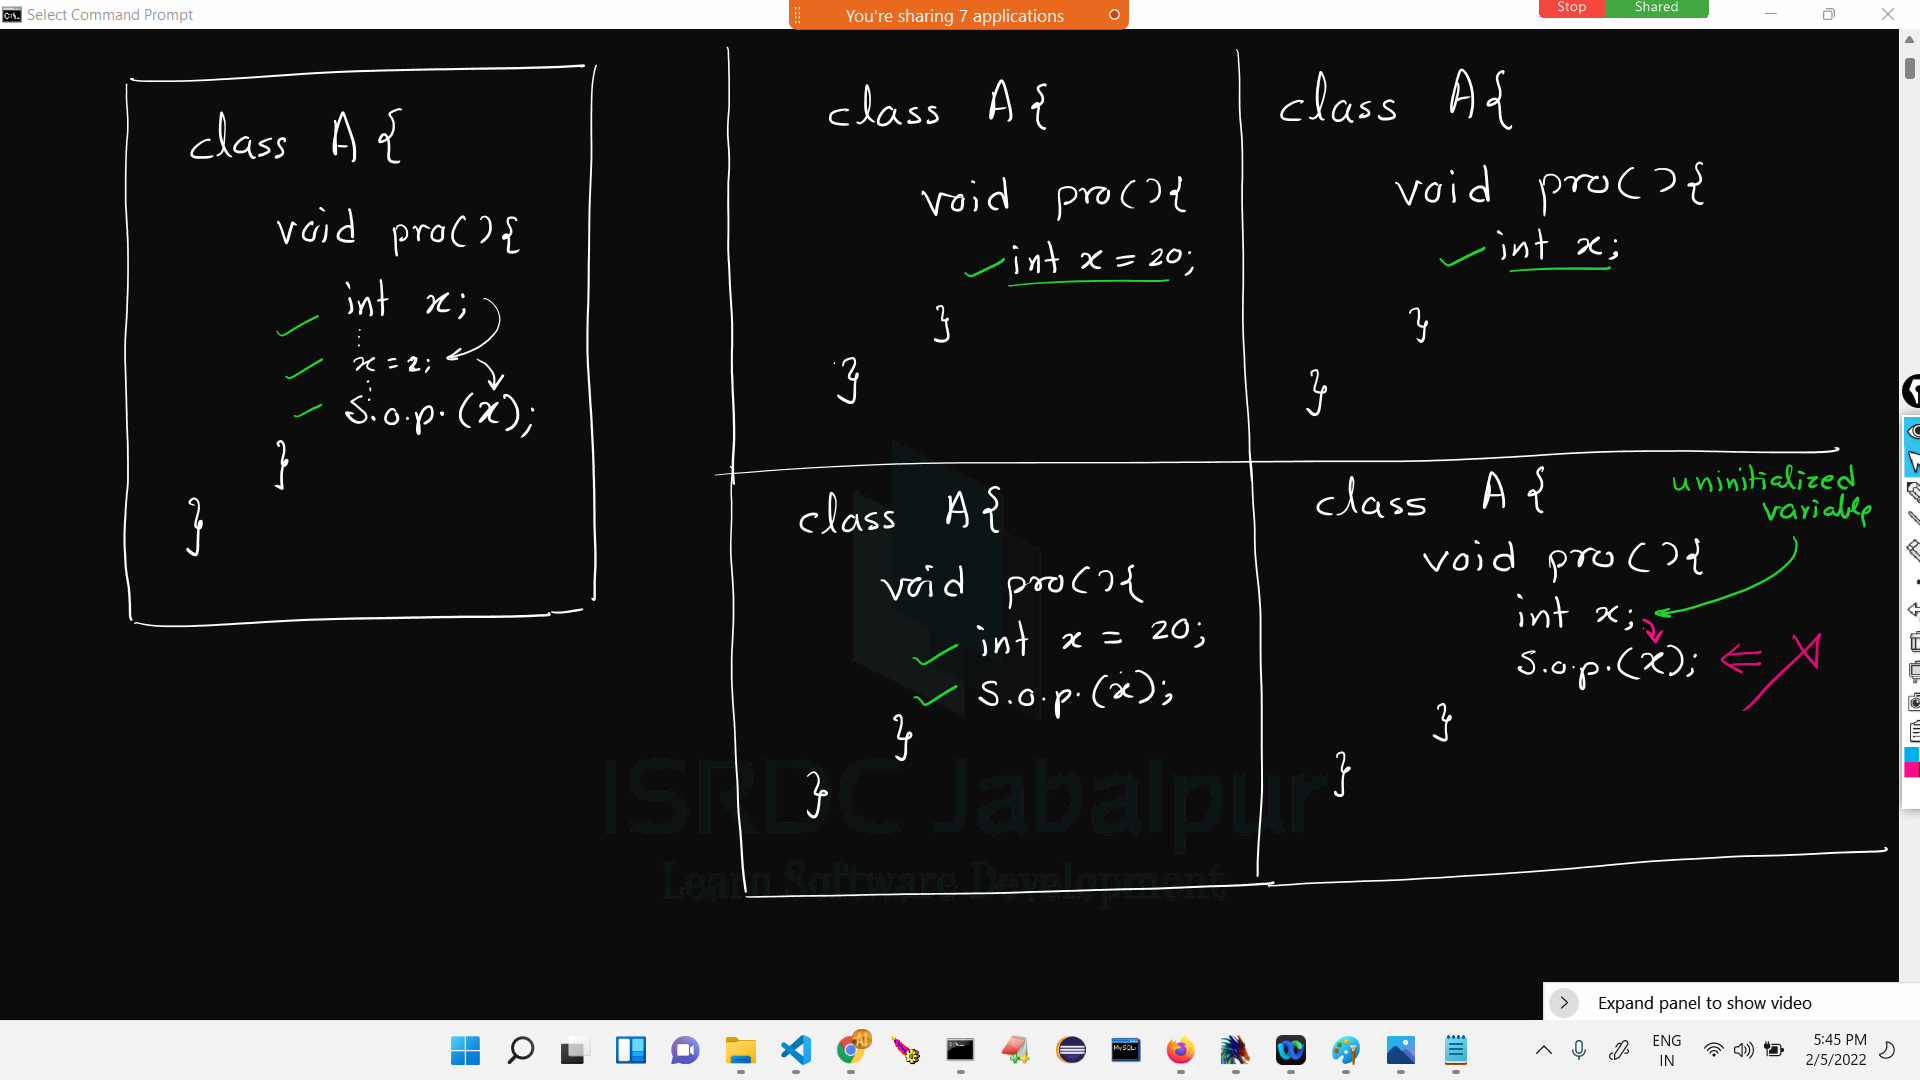 Select Command Prompt
You're sharing 7 applications
Stop
Shared
class A {
void pro(){
int x;
x = 2;
S.o.p.(x);
}
}
class A{
void pro(){
int x = 20;
}
}
class A{
void pro(){
int x;
}
}
class A{
void pro(){
int x = 20;
S.o.p.(x);
}
}
class A {
uninitialized
variable
void pro(){
int x;
S.o.p.(x);
}
}
ISRDC Jabalpur
Learn Software Development
Expand panel to show video
AI
MySQL
ENG
IN
5:45 PM
2/5/2022